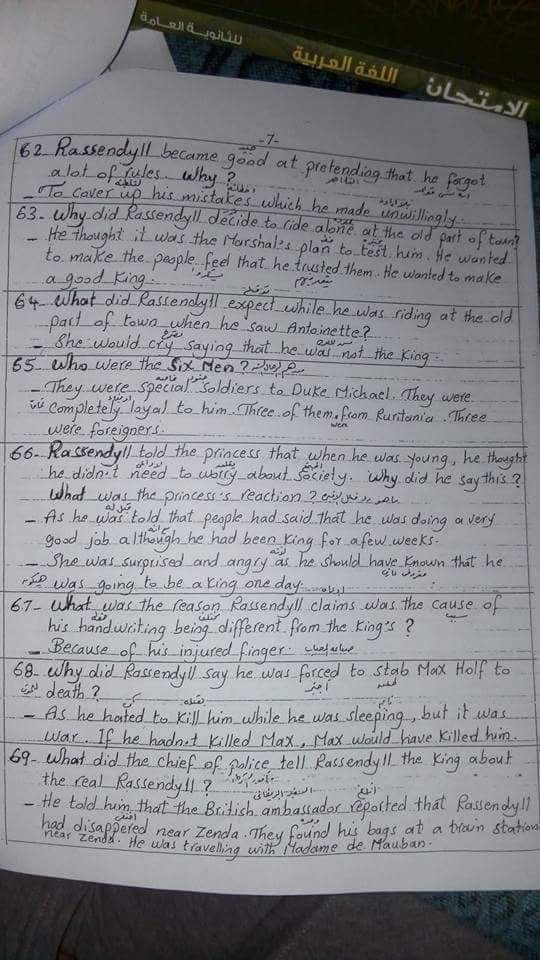 للثانوية العامة
اللغة العربية
الامتحان
-7-
62- Rassendyll became good at pretending that he forgot
a lot of rules. Why?
- To cover up his mistakes which he made unwillingly.
63- Why did Rassendyll decide to ride alone at the old part of town?
- He thought it was the Marshal's plan to test him. He wanted
to make the people feel that he trusted them. He wanted to make
a good King.
64- What did Rassendyll expect while he was riding at the old
part of town when he saw Antoinette?
- She would cry saying that he was not the King.
65- Who were the Six Men?
- They were special soldiers to Duke Michael. They were
completely loyal to him. Three of them were from Ruritania. Three
were foreigners.
66- Rassendyll told the princess that when he was young, he thought
he didn't need to worry about society. Why did he say this?
What was the princess's reaction?
- As he was told that people had said that he was doing a very
good job although he had been King for a few weeks.
- She was surprised and angry as he should have known that he
was going to be a King one day.
67- What was the reason Rassendyll claims was the cause of
his handwriting being different from the King's?
- Because of his injured finger.
68- Why did Rassendyll say he was forced to stab Max Holf to
death?
- As he hated to kill him while he was sleeping, but it was
war. If he hadn't killed Max, Max would have killed him.
69- What did the chief of police tell Rassendyll the King about
the real Rassendyll?
- He told him that the British ambassador reported that Rassendyll
had disappeared near Zenda. They found his bags at a train station
near Zenda. He was travelling with Madame de Mauban.